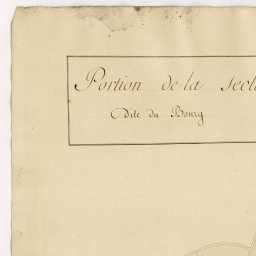 Portion de la sect
Dite du Bourg